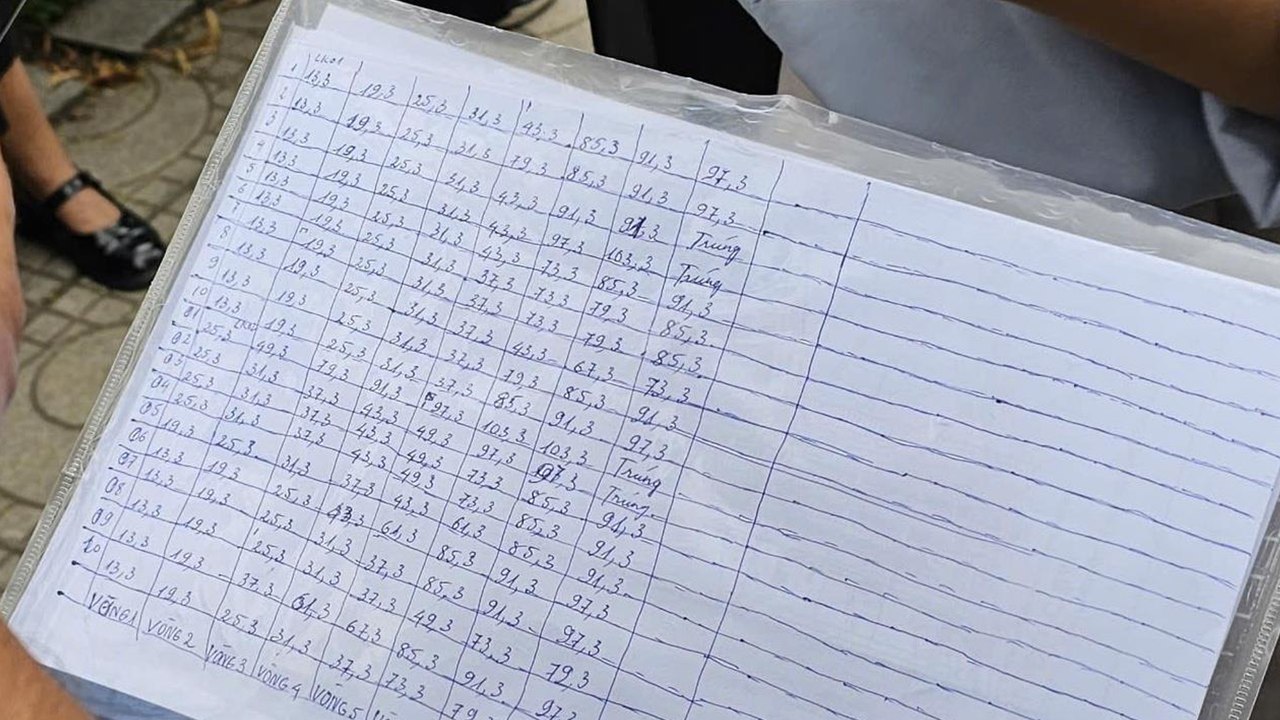 LK01
1 13,3 19,3 25,3 31,3 43,3 85,3 91,3 97,3
2 13,3 19,3 25,3 31,3 79,3 85,3 91,3 97,3
3 13,3 19,3 25,3 31,3 43,3 91,3 91,3 Trúng
4 13,3 19,3 25,3 31,3 43,3 97,3 103,3 Trúng
5 13,3 19,3 25,3 31,3 43,3 73,3 85,3 91,3
6 13,3 19,3 25,3 31,3 37,3 73,3 79,3 85,3
7 13,3 19,3 25,3 31,3 37,3 73,3 79,3 85,3
8 13,3 19,3 25,3 31,3 37,3 43,3 67,3 73,3
9 13,3 19,3 25,3 31,3 37,3 79,3 85,3 91,3
10 13,3 19,3 25,3 31,3 37,3 85,3 91,3 97,3
01 25,3 49,3 79,3 91,3 97,3 103,3 103,3 Trúng
02 25,3 31,3 37,3 43,3 49,3 97,3 97,3 Trúng
03 25,3 31,3 37,3 43,3 49,3 73,3 85,3 91,3
04 25,3 31,3 37,3 43,3 49,3 73,3 85,3 91,3
05 19,3 25,3 31,3 37,3 43,3 61,3 85,3 91,3
06 13,3 19,3 25,3 43,3 61,3 85,3 91,3 97,3
07 13,3 19,3 25,3 31,3 37,3 85,3 91,3 97,3
08 13,3 19,3 25,3 31,3 37,3 49,3 73,3 79,3
09 13,3 19,3 37,3 61,3 67,3 85,3 91,3 97,3
10 13,3 19,3 25,3 31,3 37,3 73,3 79,3
VÒNG1 VÒNG2 VÒNG3 VÒNG4 VÒNG5